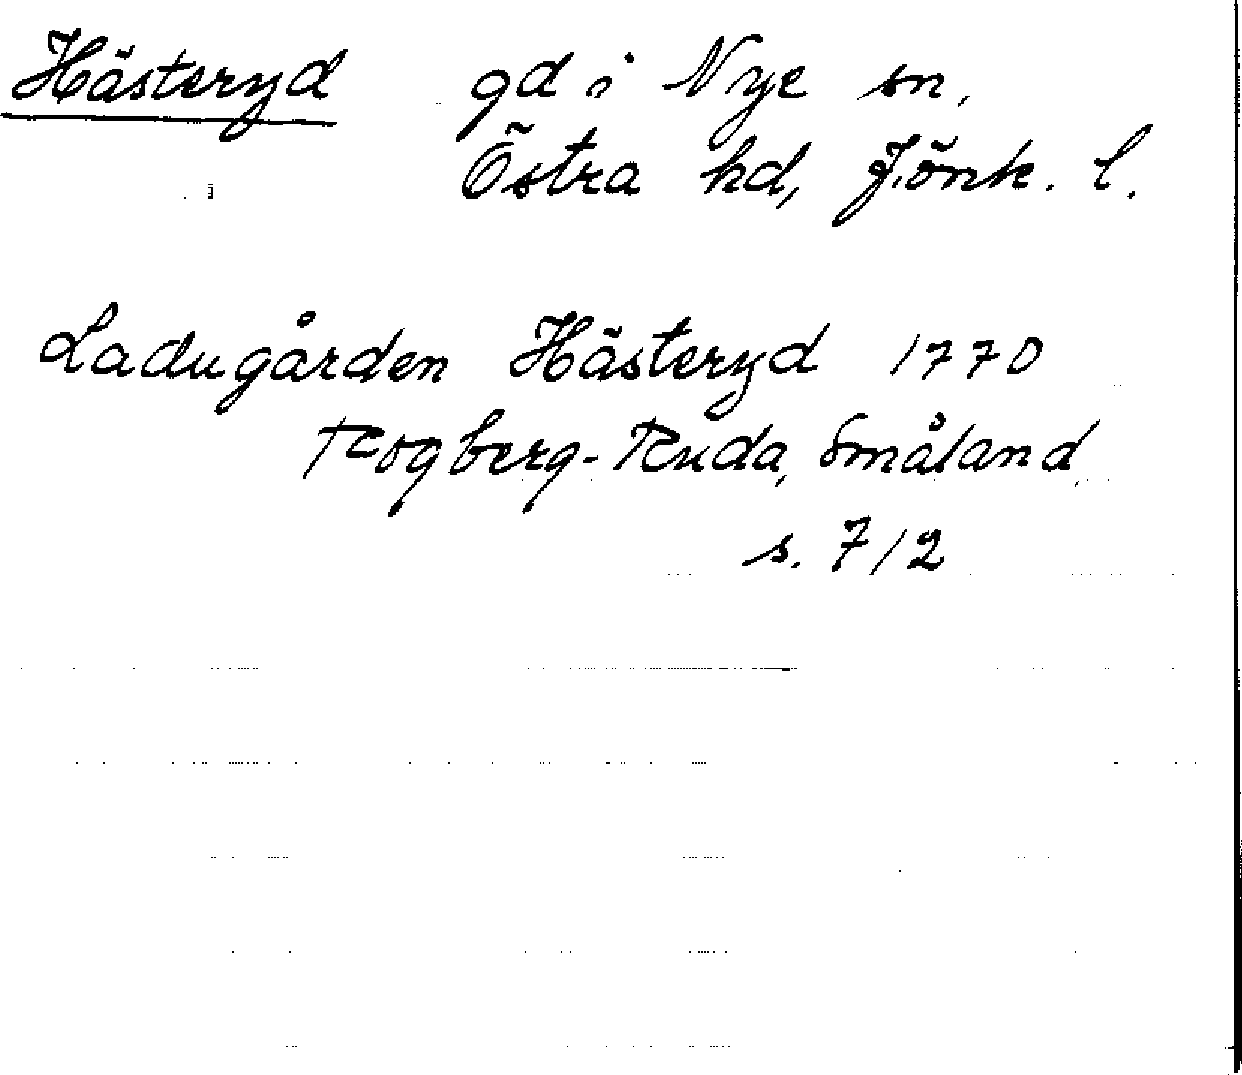 Hästeryd gd i Nye sn,
Östra hd, Jönk. l.
Ladugården Hästeryd 1770
Rogberg-Ruda, Småland,
s. 712